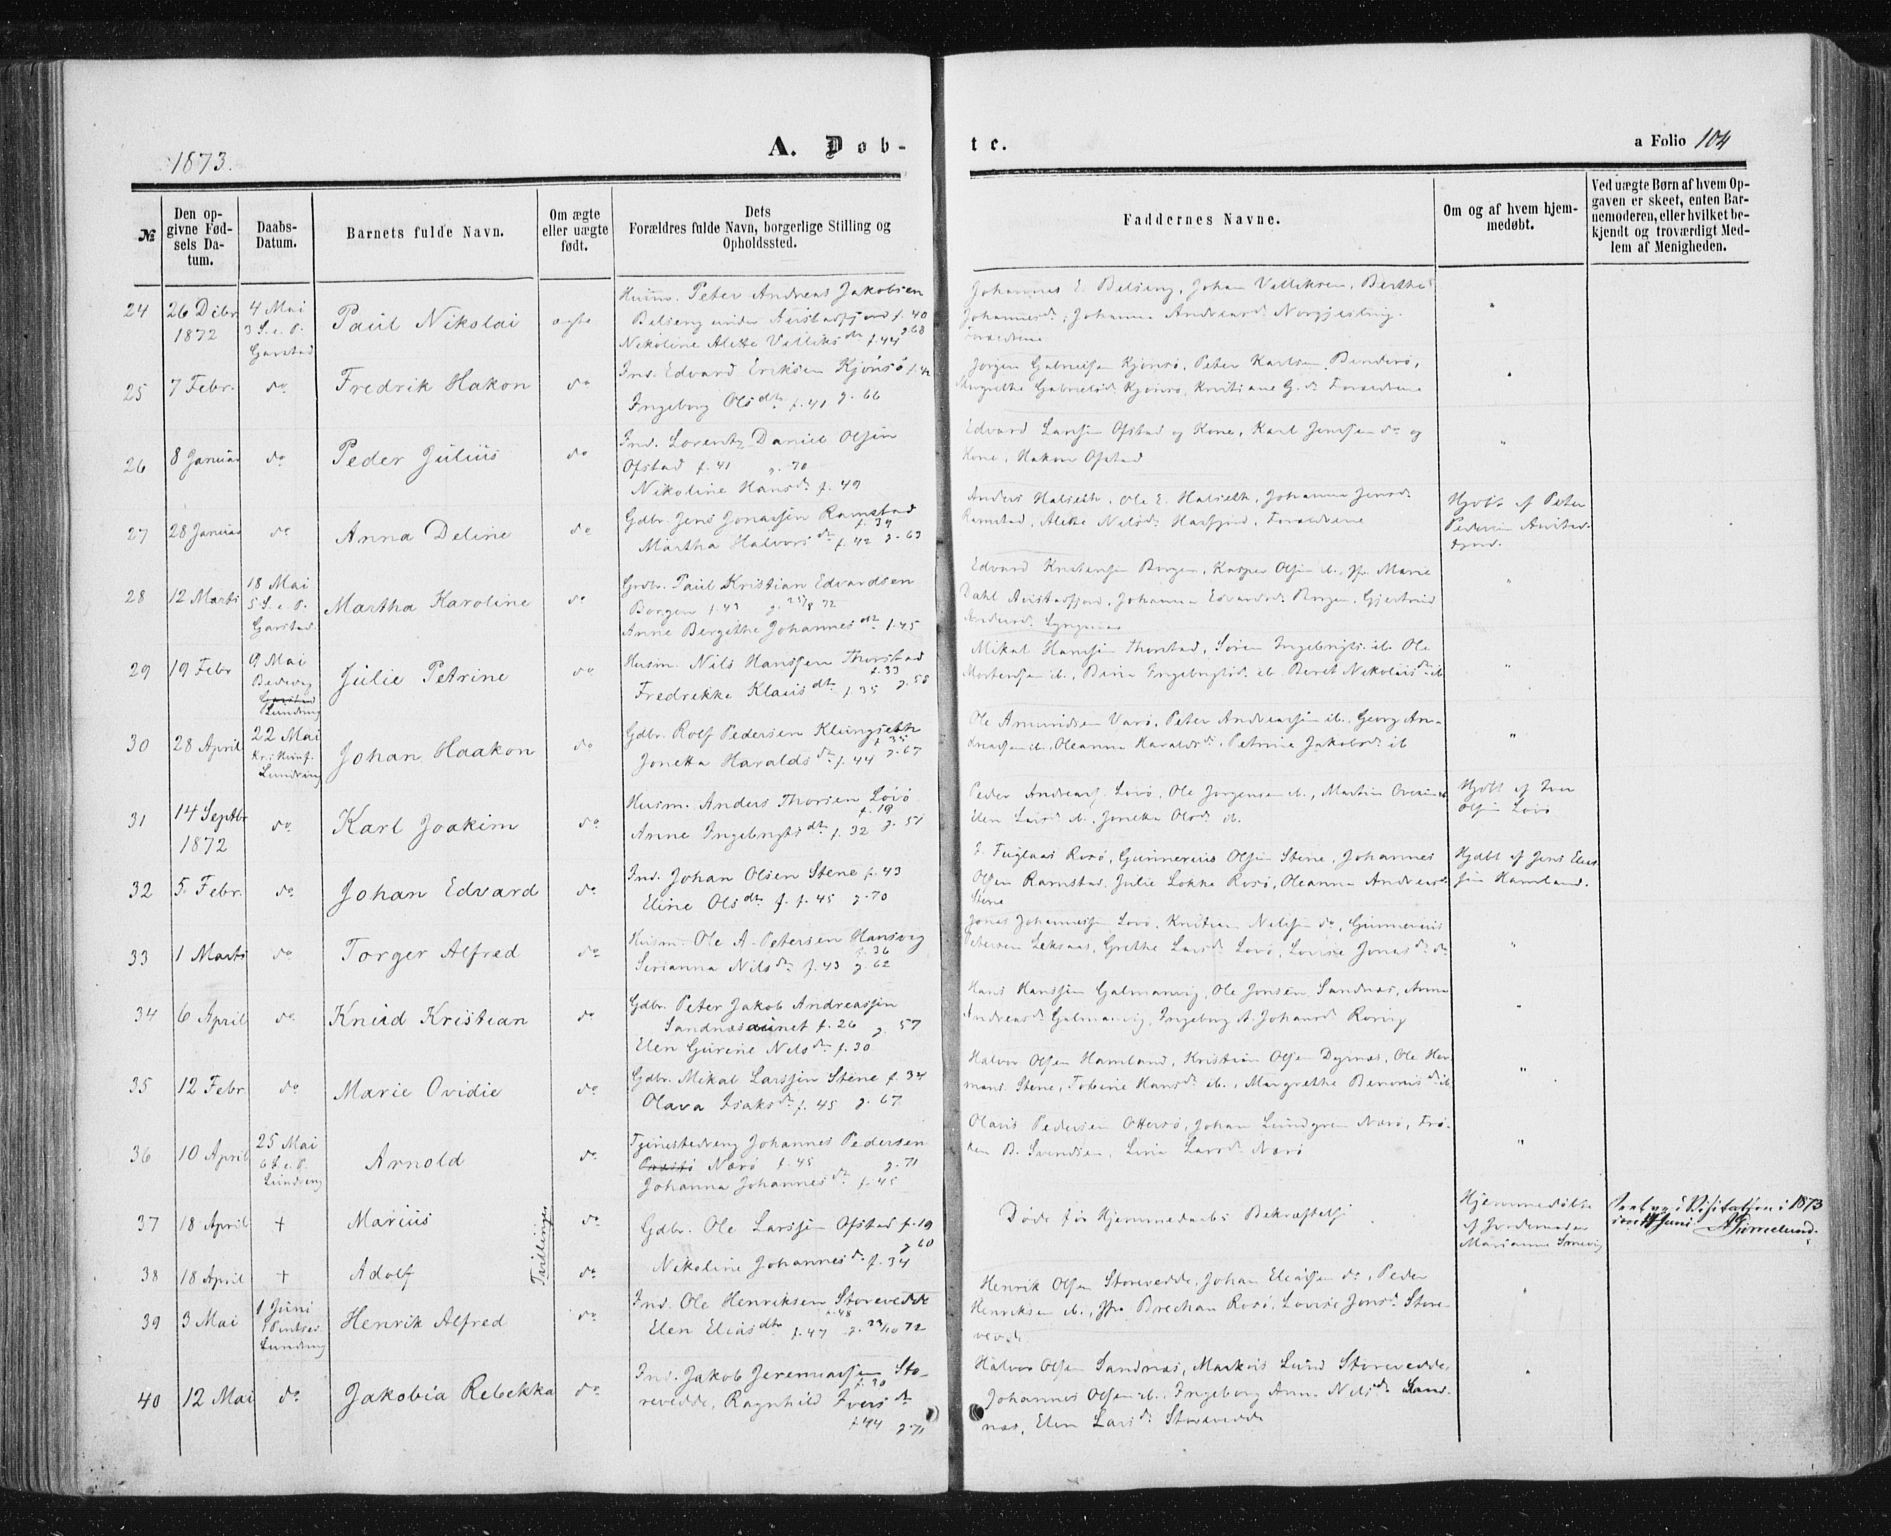 1873.
A. Døb-
te.
a Folio 104
№
Den op-
givne Fød-
sels Da-
tum.
Daabs-
Datum.
Barnets fulde Navn.
Om ægte
eller uægte
født.
Dets
Forældres fulde Navn, borgerlige Stilling og
Opholdssted.
Faddernes Navne.
Om og af hvem hjem-
medøbt.
Ved uægte Børn af hvem Op-
gaven er skeet, enten Bar-
nemoderen, eller hvilket be-
kjendt og troværdigt Med-
lem af Menigheden.
24
26 Dcbr
1872
4 Mai
3 S. e. P.
Garstad
Paul Nikolai
ægte
Husm. Peter Andreas Jakobsen
f. 40
Nikoline Alette f. 44 g. 68
Forældrene
25 7 Febr. do Fredrik Hakon do
Ind. Edvard Eriksen Kjönsö f. 42
Ingeborg Olsdtr f. 41 g. 66
Jörgen Gabrielsen Kjönsö, Peter Karlsen Benderö,
Margrethe Gabrielsd. Kjönsö, Kristiane G.d. Forældrene
26 8 Januar do Peder Julius do
Ind. Lorentz Daniel Olsen
Ofstad f. 41 g. 70
Nikoline Hansdr f. 49
Edvard Larssen Ofstad og Kone, Karl Jenssen do og
Kone, Hakon Ofstad
27 28 Januar do Anna Deline do
Gdbr. Jens Jonassen Ramstad
f. 34
Martha Halvorsdr f. 42 g. 63
Anders Halseth, Ole E. Halseth, Johanna Jensdr
Ramstad, Alette Nilsdr Horfjord, Forældrene
Hjdbt af Peter
Pedersen
28 12 Marts
18 Mai
5 S. e. P.
Garstad
Martha Karoline do
Grdbr. Paul Kristian Edvardsen
Borgen f. 43 g. 25/8 72
Anne Bergithe Johannesdtr f. 45
Edvard Kristensen Borgen, Kasper Olsen ib., Jfr. Marie
Dahl, Johanna Edvardsdr Borgen, Gjertrud
Andersd.
29 19 Febr
9 Mai
Bededag
Garstad
Lundring
Julie Petrine do
Husm. Nils Hanssen Thorstad
f. 33
Fredrekke Klausdtr f. 35 g. 58
Mikal Hanssen Thorstad, Sören Ingebrigts. ib. Ole
Mortensen ib., Bina Ingebrigtsd. ib. Beret Nikolaisdr ib
30 28 April
22 Mai
Kr. Himf.
Lundring
Johan Haakon do
Gdbr. Rolf Pedersen Klungseth
f. 35
Jonetta Haraldsdr f. 44 g. 67
Ole Amundsen Varö, Peter Andreassen ib. Georg An-
dreassen ib. Oleanna Haraldsdr, Petrine Jakobsdr ib
31
14 Septbr
1872
do Karl Joakim do
Husm. Anders Thorsen Lövö
f. 19
Anne Ingebrigtsdtr f. 32 g. 51
Peder Andreass. Lövö, Ole Jorgensen ib., Martin
Elen Larsd. ib. Jonetta Olsdr ib.
Hjdbt af Iver
Olsen Lövö
32 5 Febr. do Johan Edvard do
Ind. Johan Olsen Stene f. 43
Eline Olsdtr f. 45 g. 70
J. Fuglaas Rosö, Gunnerius Olsen Stene, Johannes
Olsen Ramstad, Julie Lokke Rosö, Oleanna Andreasdr
Stene
Hjdbt af Jens Elias
sen Hamland.
33 1 Marts do Torger Alfred do
Husm. Ole A. Petersen Hansvig
f. 36
Serianna Nilsdr f. 43 g. 62
Jonas Johannessen Lövö, Kristian Nilssen do, Gunnerius
Petersen Leksaas, Grethe Larsdr Lövö, Lovise Jonasdr do
34 6 April do Knud Kristian do
Gdbr. Peter Jakob Andreassen
Sandnesaunet f. 26 g. 57
Elen Gurine Nilsdr f. 30
Hans Hanssen Galmanvig, Ole Jonsen Sandnæs, Anna
Andreasdr Galmanvig, Ingeborg A. Johansd. Rörvig
35 12 Febr do Marie Ovidie do
Gdbr. Mikal Larssen Stene f. 34
Olava Isaksdr f. 45 g. 67
Halvor Olsen Hamland, Kristian Olsen Dyrnæs, Ole Her-
mans. Stene, Tobine Hansdr ib., Margrethe Benonisdr ib
36 10 April
25 Mai
6 S. e. P.
Lundring
Arnold do
Tjenestedreng Johannes Pedersen
Nærö f. 45 g. 71
Johanna Johannesdr f. 45
Olaus Pedersen Ottersö, Johan Lundgren Nærö, Frö-
ken B. Svendsen, Lina Larsdr Nærö
37 18 April + Marius do
Tvillinger
Gdbr. Ole Larssen Ofstad f. 19
g. 60
Nikoline Johannesdr f. 34
Döde för Hjemmedaabs Bekræftelse
Hjemmedöbte
af Jordemoder
Marianne
38 18 April + Adolf do
39 3 Mai
1 Juni
1 Pintsed.
Lundring
Henrik Alfred do
Ind. Ole Henriksen Storevedde
f. 48
Elen Eliasdtr f. 47 g. 23/10 72
Henrik Olsen Storevedde, Johan Eliassen do, Peder
Henriksen ib., Jfr. Brechan Rosö, Lovise Jonsd. Store-
vedde
40 12 Mai do Jakobia Rebekka do
Ind. Jakob Jeremiassen Sto-
f. 30
revedde, Ragnhild Iversdr
f. 44 g. 71
Halvor Olsen Sandnæs, Markus Lund Storevedde,
Johannes Olsen ib., Ingeborg Anna Nilsdr Sand-
næs, Elen Larsdr Storevedde